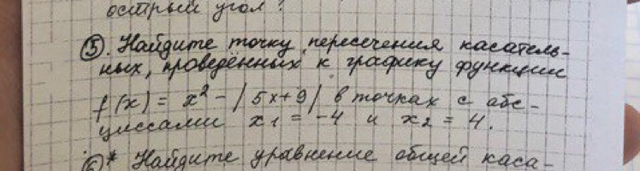 острый угол?
⑤. Найдите точку пересечения касатель-
ных, проведённых к графику функции
f(x) = x² - |5x+9| в точках с абс-
циссами x₁ = -4 и x₂ = 4.
6* Найдите уравнение общей каса-